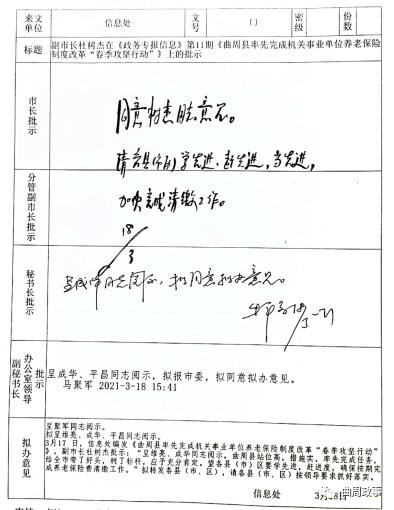 来文单位 信息处 文号 () 密级 份数
标题 副市长杜树杰在《政务专报信息》第11期《曲周县率先完成机关事业单位养老保险制度改革“春季攻坚行动”》上的批示
市长批示
同意树杰同志意见。
请各县(市、区)学先进、赶先进、当先进,
加快完成清缴工作。
18/3
分管副市长批示
秘书长批示
呈成华同志阅示,拟同意拟办意见。
办公室领导
副秘书长
批示
呈成华、平昌同志阅示,拟报市委,拟同意拟办意见。
马聚军 2021-3-18 15:41
拟办意见
呈聚军同志阅示。
拟呈维亮、成华、平昌同志阅示。
3月17日,信息处编发《曲周县率先完成机关事业单位养老保险制度改革“春季攻坚行动”》,副市长杜树杰批示:“呈维亮、成华同志阅示。曲周县站位高,措施实,率先完成任务,
给全市带了好头,树了标杆,应予充分肯定。望各县(市)区要学先进,赶进度,确保按期完
成养老保险费清缴工作。”拟转发各县(市)区,请各县(市)区按领导要求抓好落实。
信息处 3月18日
曲周政事